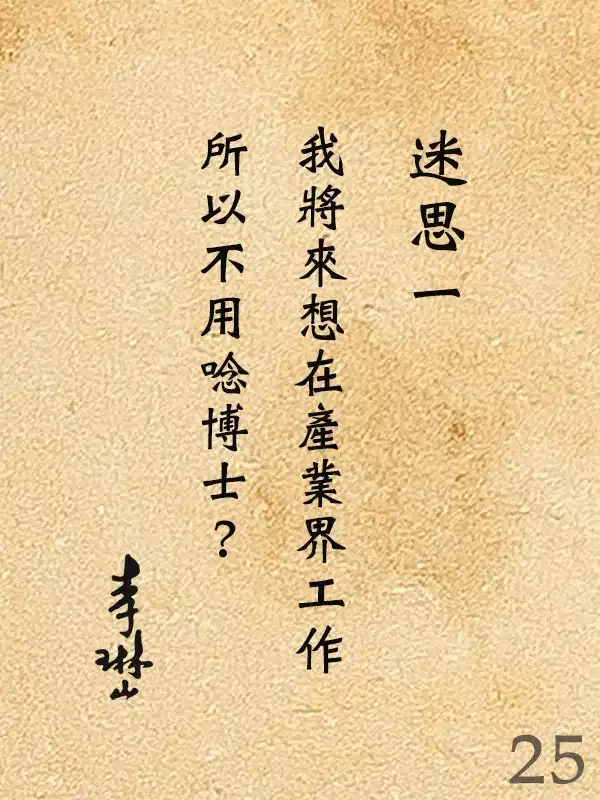 迷思一
我將來想在產業界工作
所以不用唸博士？
李琳山
25